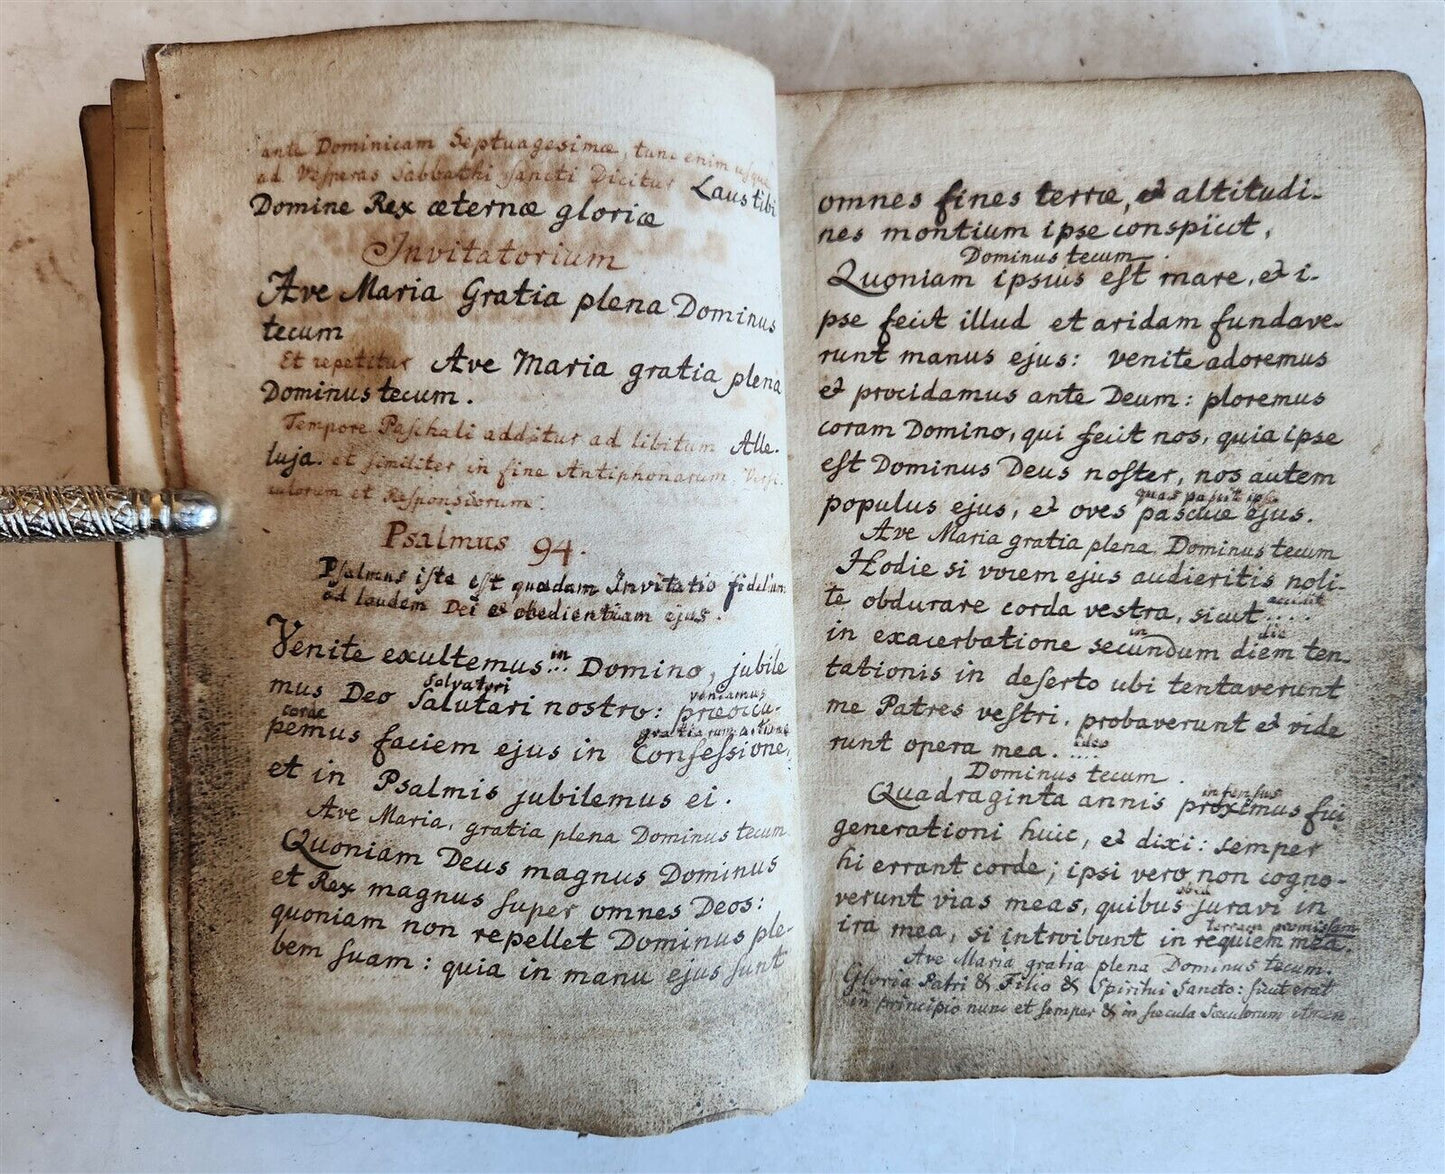 ante Dominicam Septuagesimæ, tunc enim usque
ad Vesperas Sabbathi sancti Dicitur Laus tibi
Domine Rex æternæ gloriæ
Invitatorium
Ave Maria Gratia plena Dominus
tecum
Et repetitur Ave Maria gratia plena
Dominus tecum.
Tempore Paschali additur ad libitum Alle-
luja. et similiter in fine Antiphonarum, Versi-
culorum et Responsiorum.
Psalmus 94.
Psalmus iste est quædam Invitatio fidelium
ad laudem Dei et obedientiam ejus.
in
Venite exultemus ... Domino, jubile
salvatori veniamus
mus Deo Salutari nostro: præoccu-
corde gratiarum actione
pemus faciem ejus in Confessione,
et in Psalmis jubilemus ei.
Ave Maria, gratia plena Dominus tecum
Quoniam Deus magnus Dominus
et Rex magnus super omnes Deos:
quoniam non repellet Dominus ple-
bem suam: quia in manu ejus sunt
omnes fines terræ, et altitudi-
nes montium ipse conspicit,
Dominus tecum.
Quoniam ipsius est mare, et i-
pse fecit illud et aridam fundave-
runt manus ejus: venite adoremus
et procidamus ante Deum: ploremus
coram Domino, qui fecit nos, quia ipse
est Dominus Deus noster, nos autem
quas pascit ipse
populus ejus, et oves pascuæ ejus.
Ave Maria gratia plena Dominus tecum
Hodie si vocem ejus audieritis noli-
accidit
te obdurare corda vestra, sicut ....
in die
in exacerbatione secundum diem ten-
tationis in deserto ubi tentaverunt
me Patres vestri, probaverunt et vide
ideo
runt opera mea. ....
Dominus tecum.
infensus
Quadraginta annis proximus fui
generationi huic, et dixi: semper
hi errant corde; ipsi vero non cogno-
verunt vias meas, quibus juravi in
terram promissam
ira mea, si introibunt in requiem mea.
Ave Maria gratia plena Dominus tecum.
Gloria Patri & Filio & Spiritui Sancto: sicut erat
in principio nunc et semper & in sæcula sæculorum Amen.